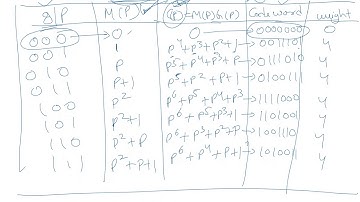 SP M(P) C(P) = M(P)G(P) Codeword weight
000 0 0 0000000 0
001 1 P⁴+P³+P²+1 0011101 4
010 P P⁵+P⁴+P³+P 0111010 4
011 P+1 P⁵+P²+P+1 0100111 4
100 P² P⁶+P⁵+P⁴+P³ 1111000 4
101 P²+1 P⁶+P⁵+P³+1 1101001 4
110 P²+P P⁶+P³+P²+P 1001110 4
111 P²+P+1 P⁶+P⁴+P+1 1010011 4